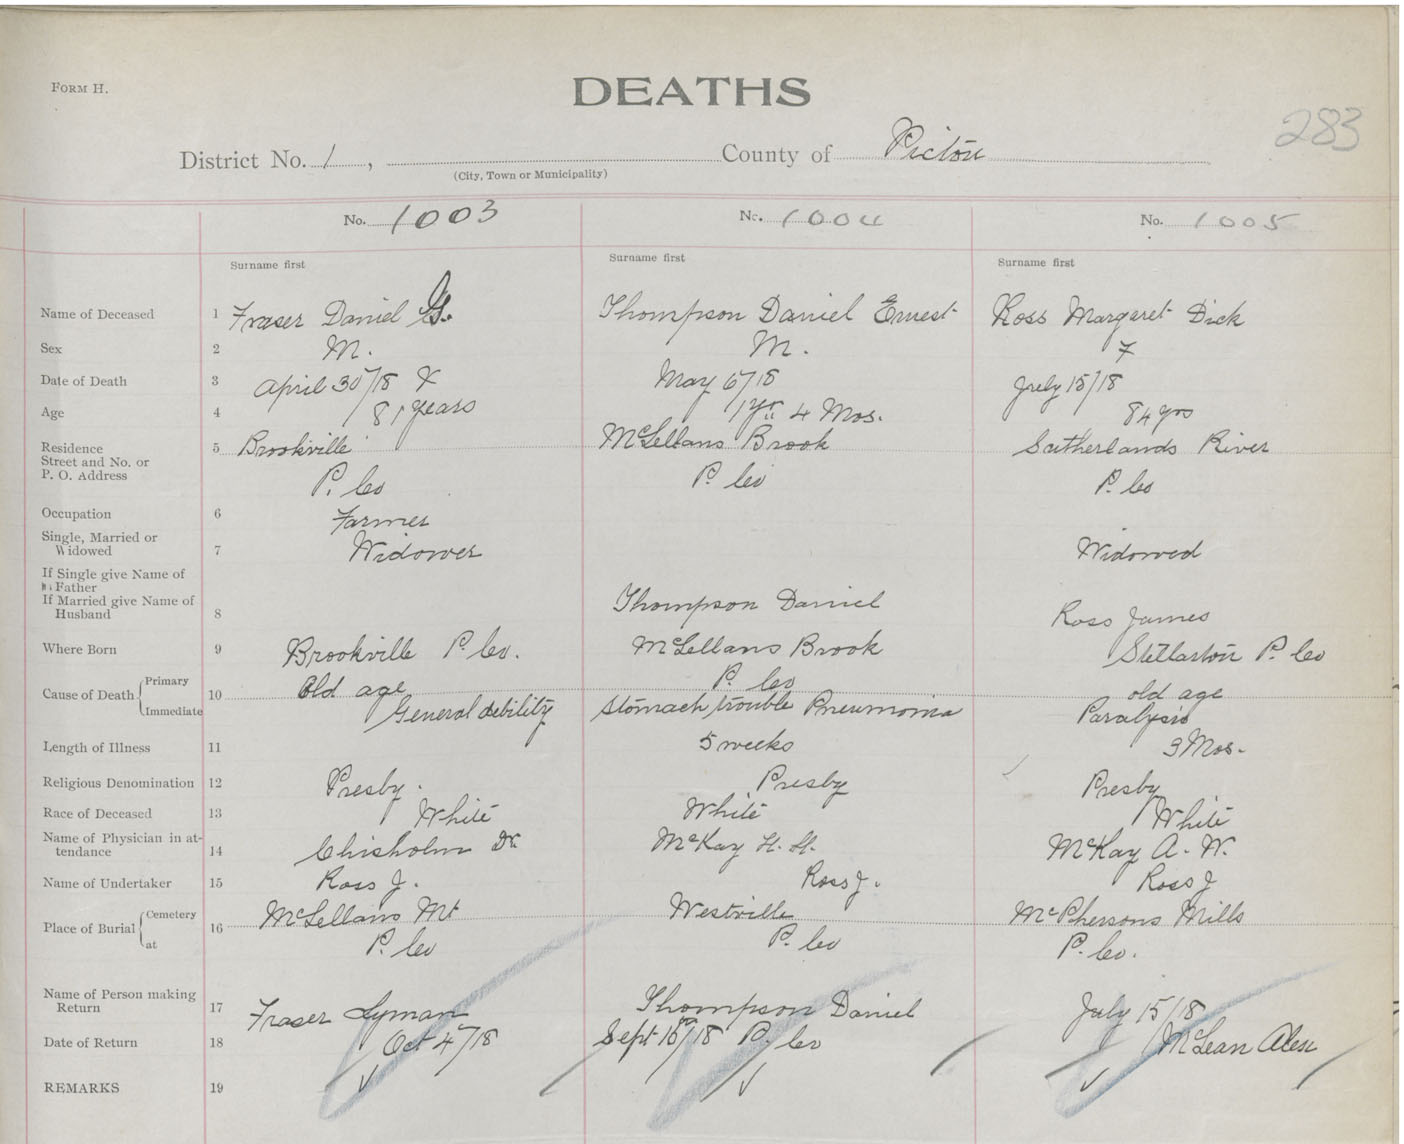 FORM H.
DEATHS
283
District No. 1, County of Pictou
(City, Town or Municipality)
No. 1003 No. 1004 No. 1005
Surname first Surname first Surname first
Name of Deceased 1 Fraser Daniel G. Thompson Daniel Ernest Ross Margaret Dick
Sex 2 M. M. F
Date of Death 3 April 30/18 X May 6/18 July 15/18
Age 4 81 years 1 yr 4 Mos. 84 yrs
Residence 5 Brookville McLellans Brook Sutherlands River
Street and No. or
P. O. Address P. Co P. Co P. Co
Occupation 6 Farmer
Single, Married or
Widowed 7 Widower Widowed
If Single give Name of
Father
If Married give Name of
Husband 8 Thompson Daniel Ross James
Where Born 9 Brookville P. Co. McLellans Brook P. Co Stellarton P. Co
Cause of Death Primary 10 Old age Stomach trouble Pneumonia old age
Immediate General debility Paralysis
Length of Illness 11 5 weeks 3 Mos.
Religious Denomination 12 Presby. Presby Presby
Race of Deceased 13 White White White
Name of Physician in at-
tendance 14 Chisholm Dr. McKay H. H. McKay A. W.
Name of Undertaker 15 Ross J. Ross J. Ross J
Place of Burial Cemetery 16 McLellans Mt Westville McPhersons Mills
at P. Co P. Co P. Co.
Name of Person making
Return 17 Fraser Lyman Thompson Daniel July 15/18
Date of Return 18 Oct 4/18 Sept 16/18 P. Co McLean Alex
REMARKS 19